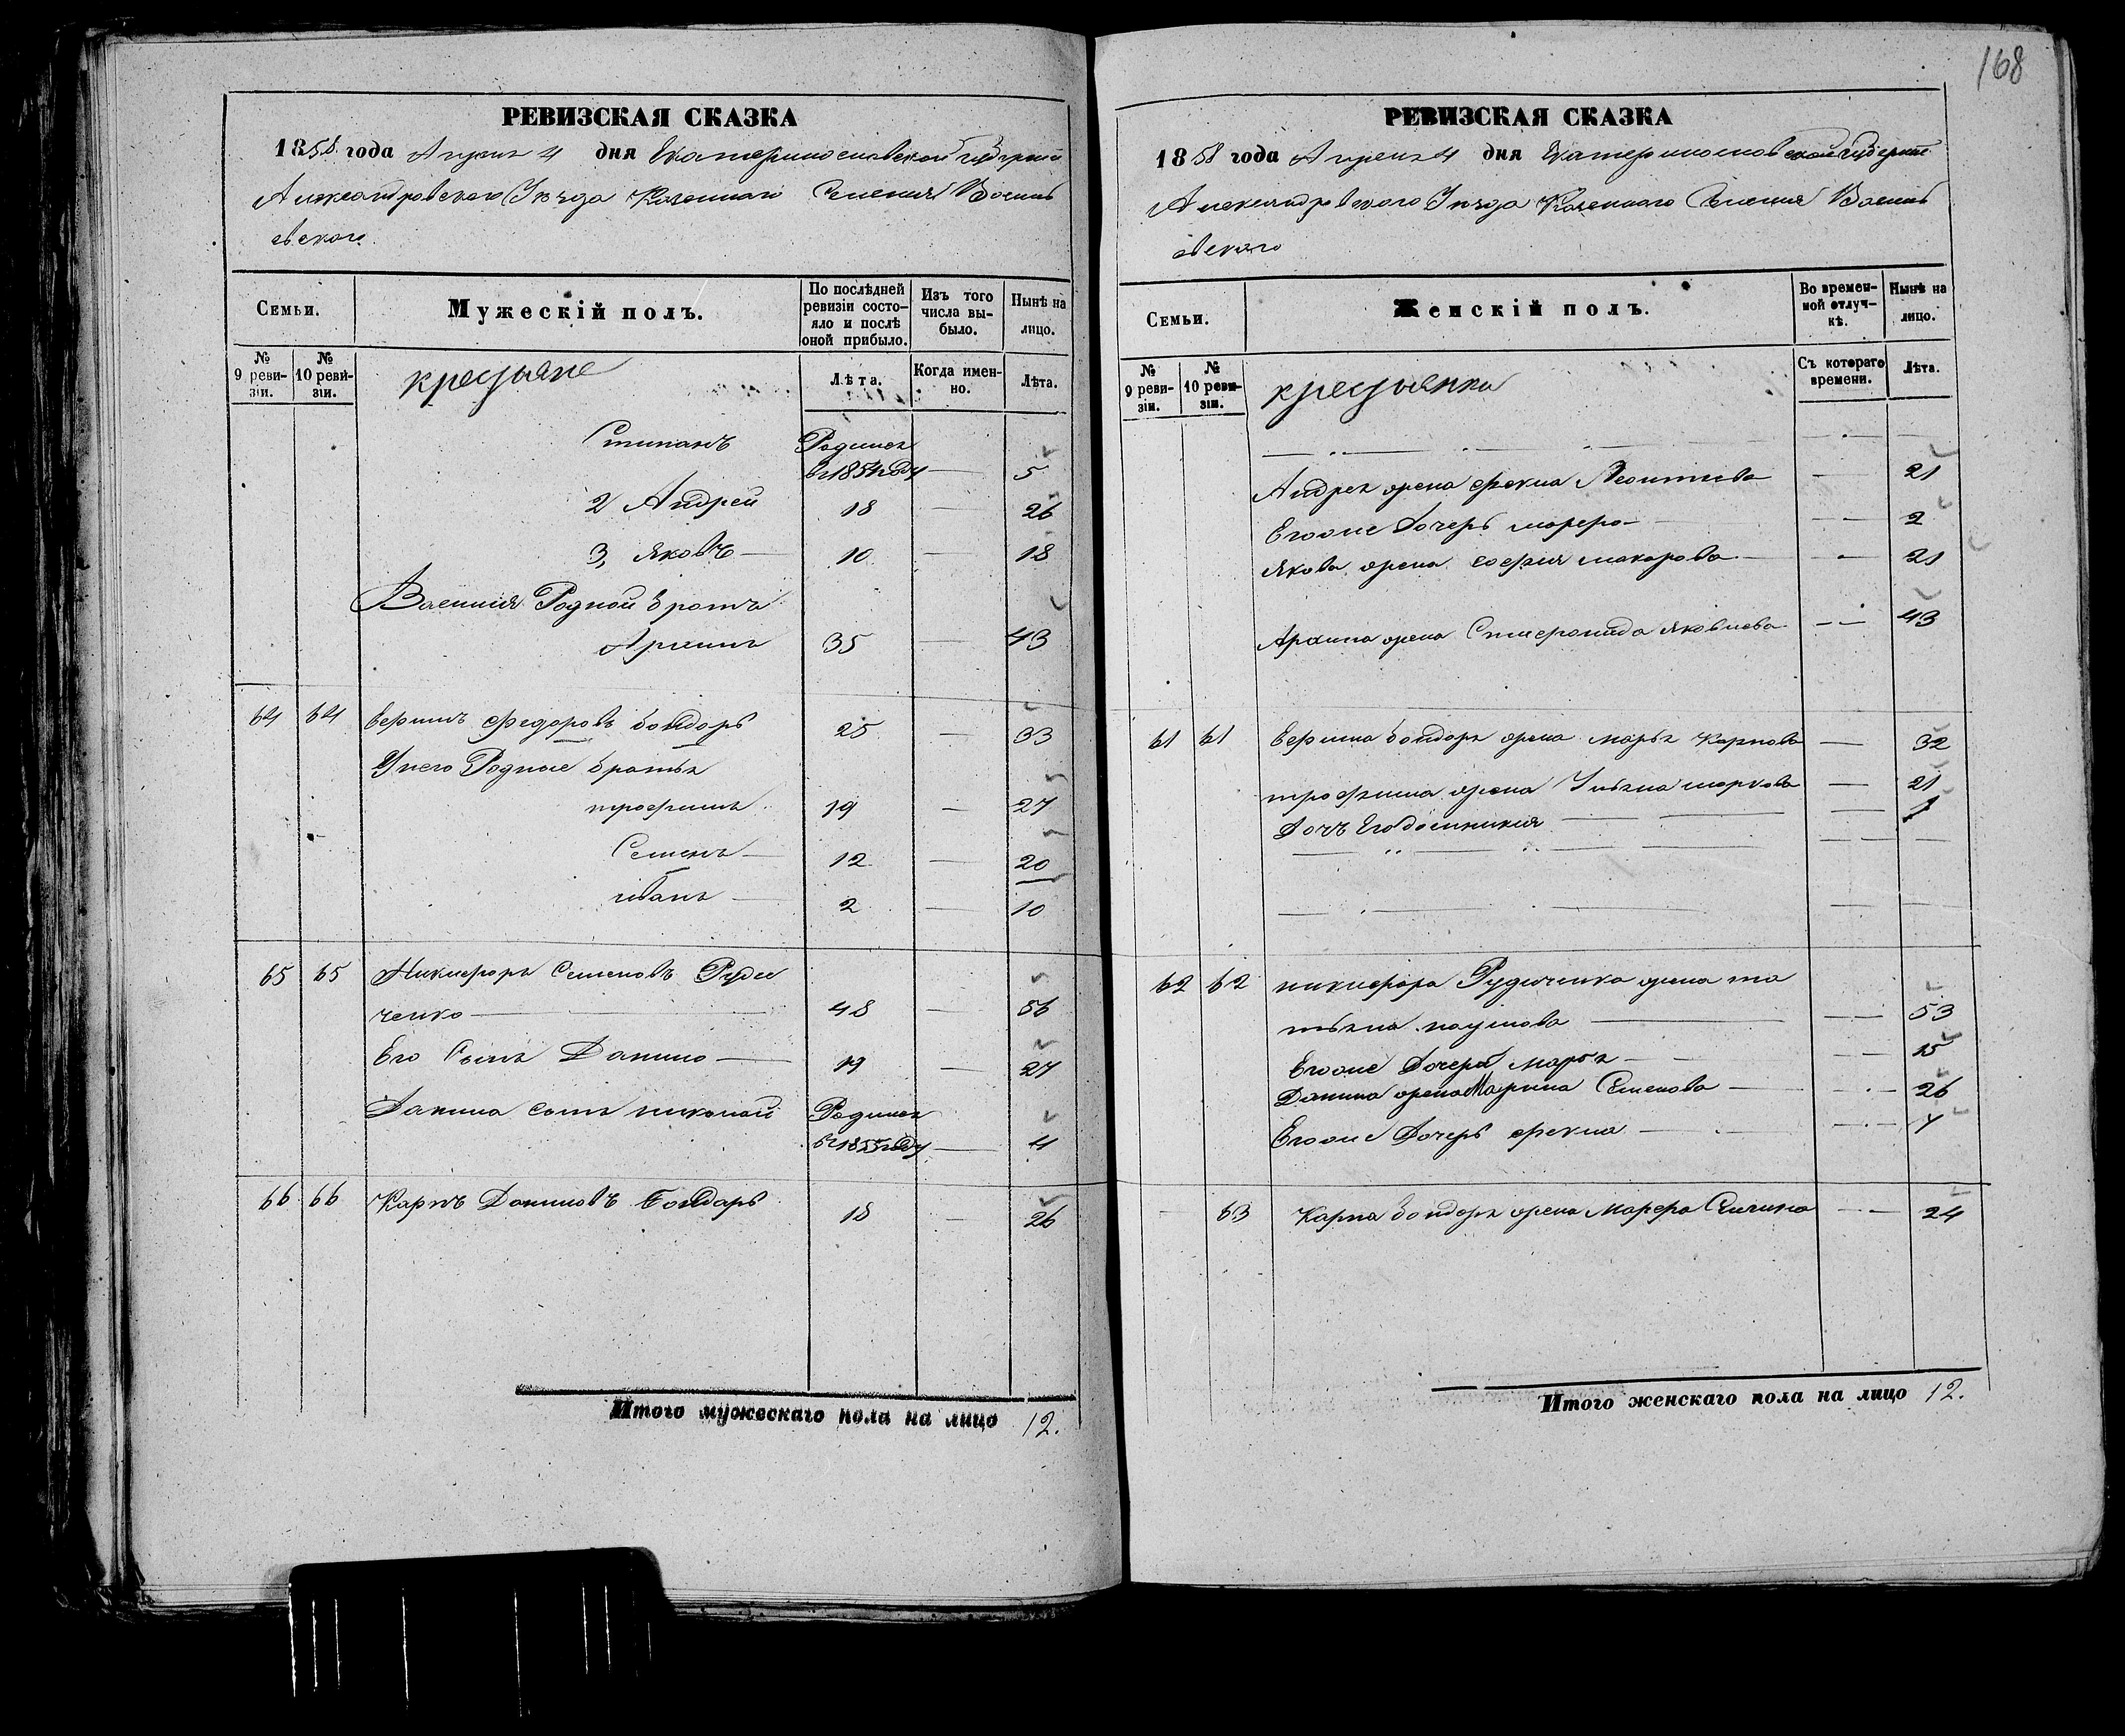 168
РЕВИЗСКАЯ СКАЗКА
1858 года Апреля 4 дня Екатеринославской губернии
Александровского Уезда Казенного Селения Васинь
евского
Семьи.
Мужескій полъ.
По послѣдней ревизіи состояло и послѣ оной прибыло.
Изъ того числа выбыло.
Нынѣ на лицо.
№ 9 ревизіи.
№ 10 ревизіи.
крестьяне
Лѣта.
Когда именно.
Лѣта.
Степанъ Родился
в 1854 году — 5
2 Андрей 18 — 26
3, Яковъ — 10 — 18
Василия Родной братъ
Архипъ 35 — 43
64 64 Ефимъ Федоровъ бондарь 25 — 33
У него Родные братья
трофимъ 19 — 27
Семенъ — 12 — 20
иванъ — 2 — 10
65 65 Никифоръ Семеновъ Руди
ченко — 48 — 56
Его Сынъ Данило — 19 — 27
Данила сынъ николай Родился
в 1855 году — 4
66 66 Карпъ Даниловъ Бондарь 18 — 26
Итого мужескаго пола на лицо 12.
РЕВИЗСКАЯ СКАЗКА
1858 года Апреля 4 дня Екатеринославской губернии
Александровского Уезда Казенного Селения Васинь
евского
Семьи.
Женскій полъ.
Во временной отлучкѣ.
Нынѣ на лицо.
№ 9 ревизіи.
№ 10 ревизіи.
крестьянки
Съ котораго времени.
Лѣта.
Андрея жена фекла Леонтиева — 21
Егоже Дочерь марфа — 2
Якова жена софия макарова — 21
Архипа жена Яковлева — 43
61 61 Ефима бондаря жена марья Карпова — 32
трофима жена Ульяна маркова — 21
Дочь Его 1
62 62 никифора Рудиченка жена та
тьяна наумова — 53
Егоже Дочерь марья — 15
Данила жена Марина Семенова — 26
Егоже Дочерь фекла — 7
63 Карпа бондаря жена Марфа 24
Итого женскаго пола на лицо 12.